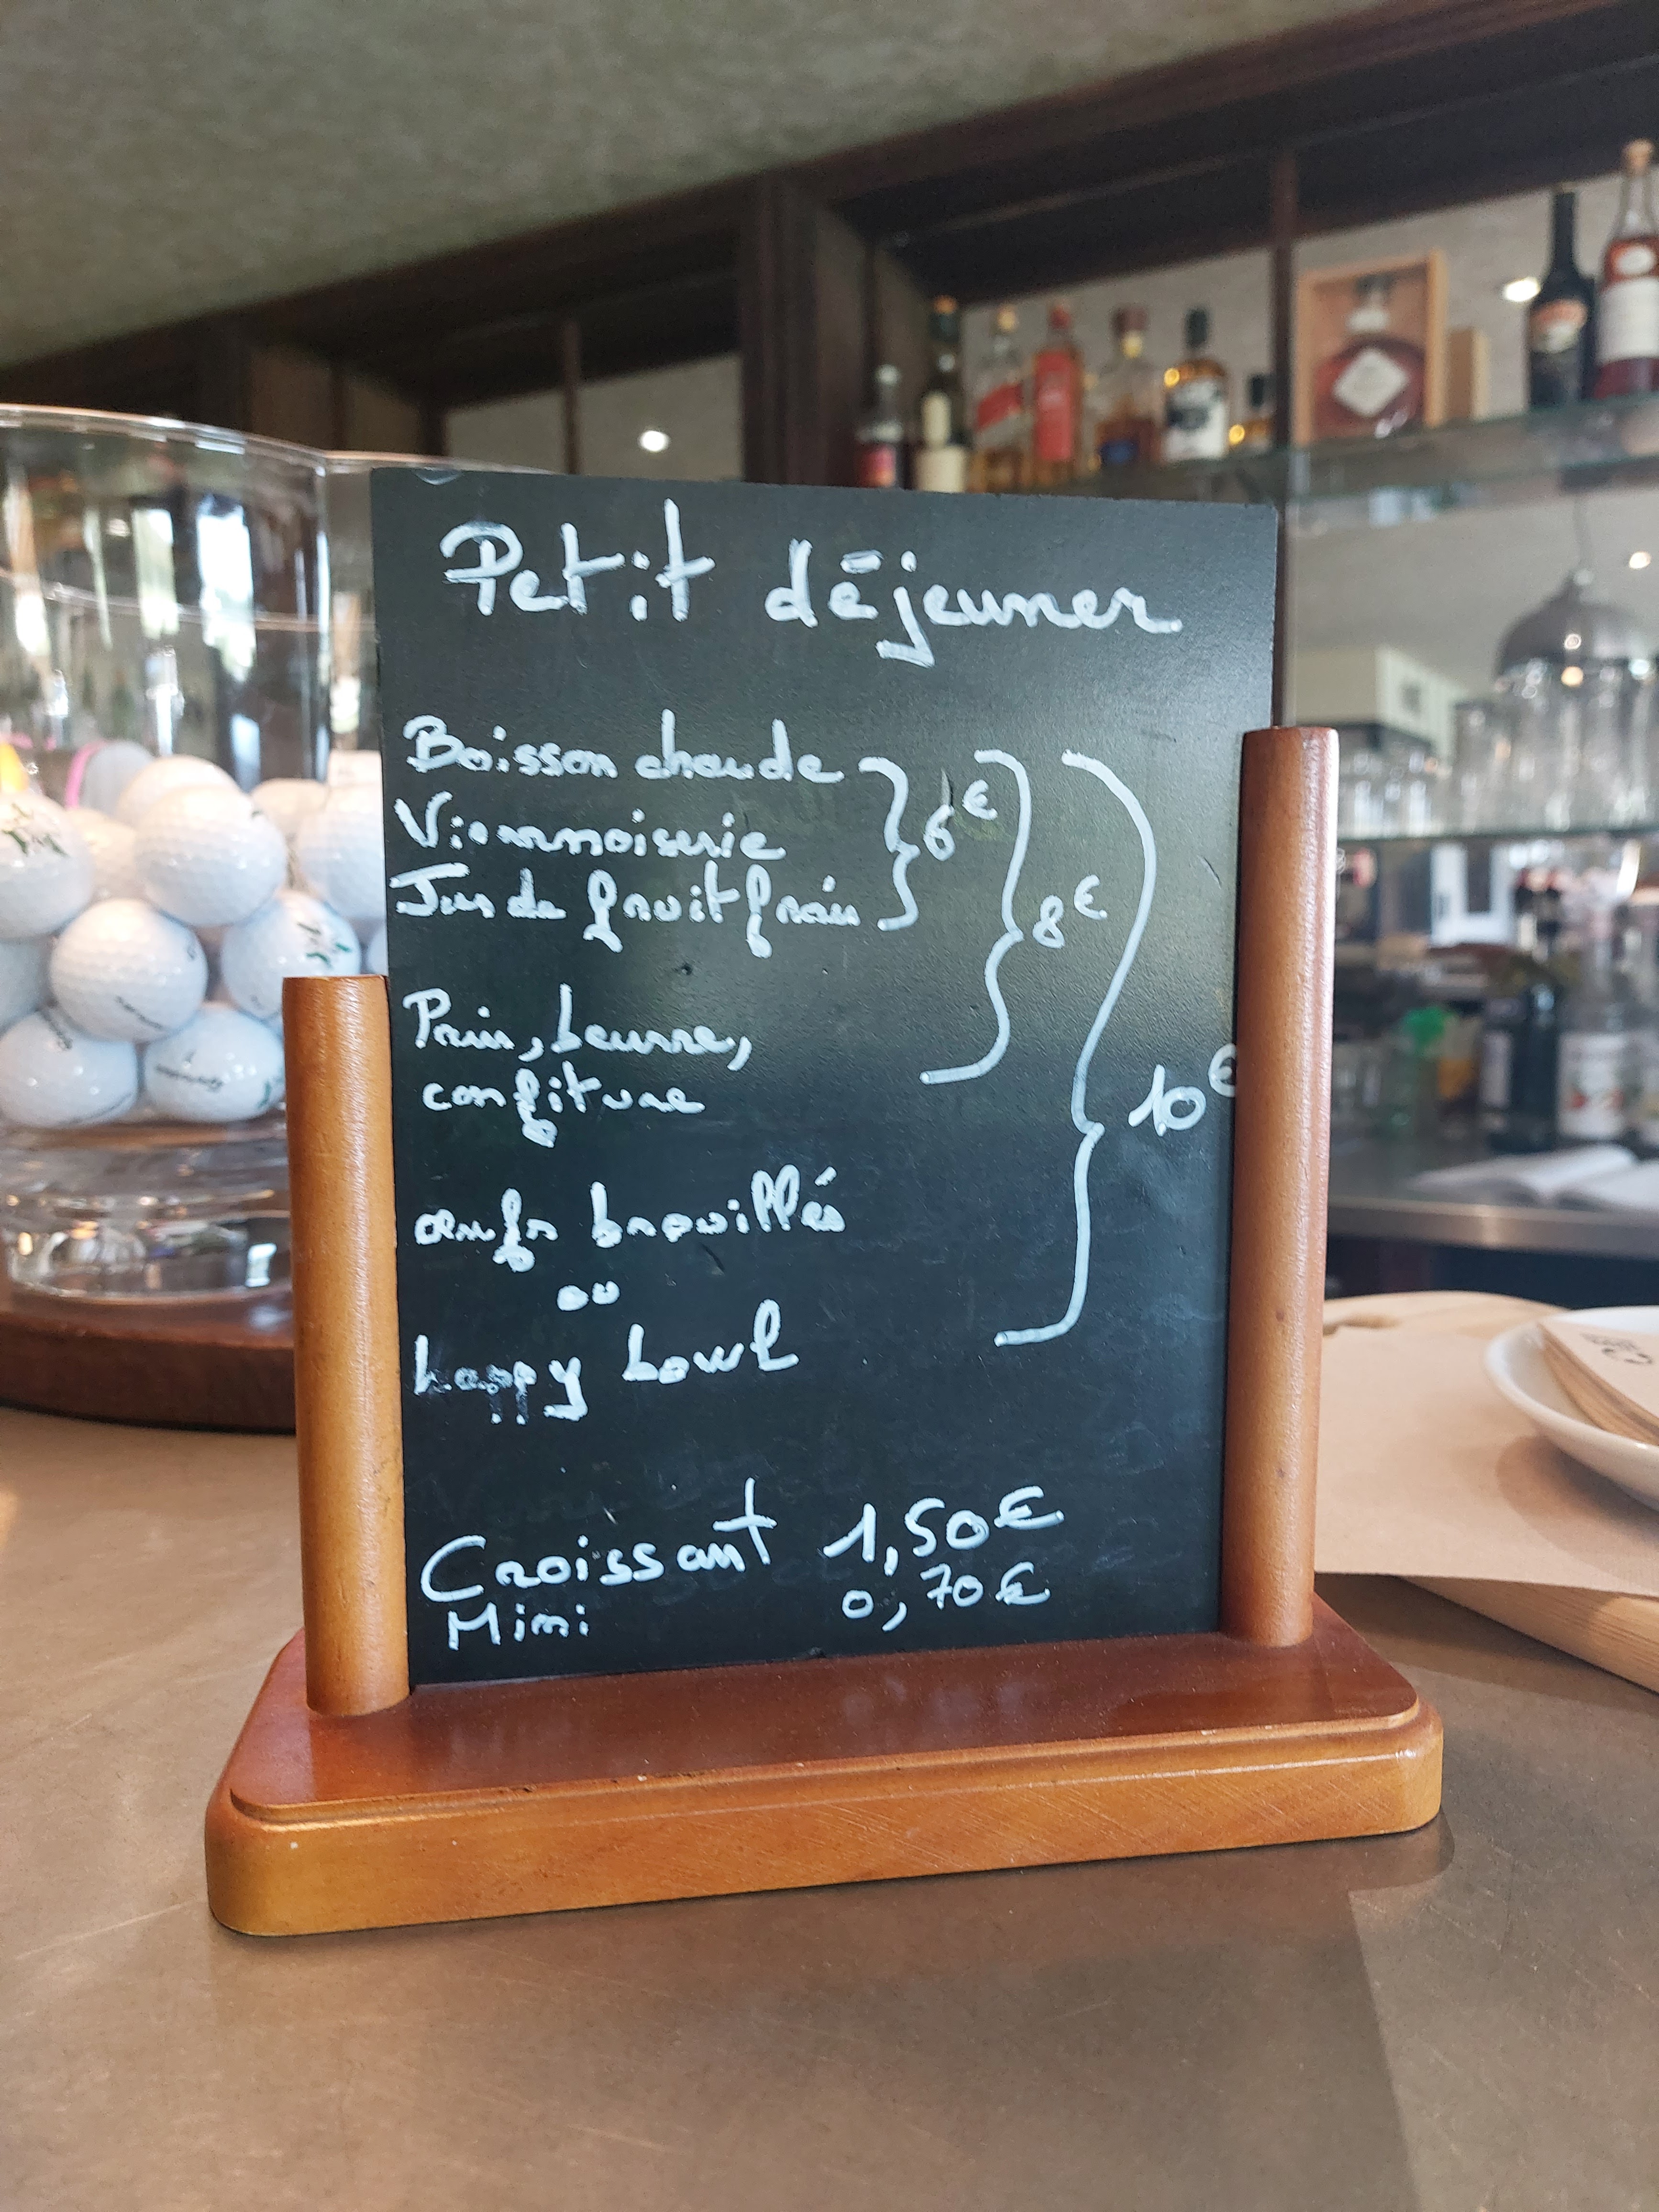 Petit déjeuner
Boisson chaude
Viennoiserie
Jus de fruit frais
6€
8€
Pain, beurre,
confiture
10€
œufs brouillés
ou
happy bowl
Croissant 1,50€
Mini 0,70€